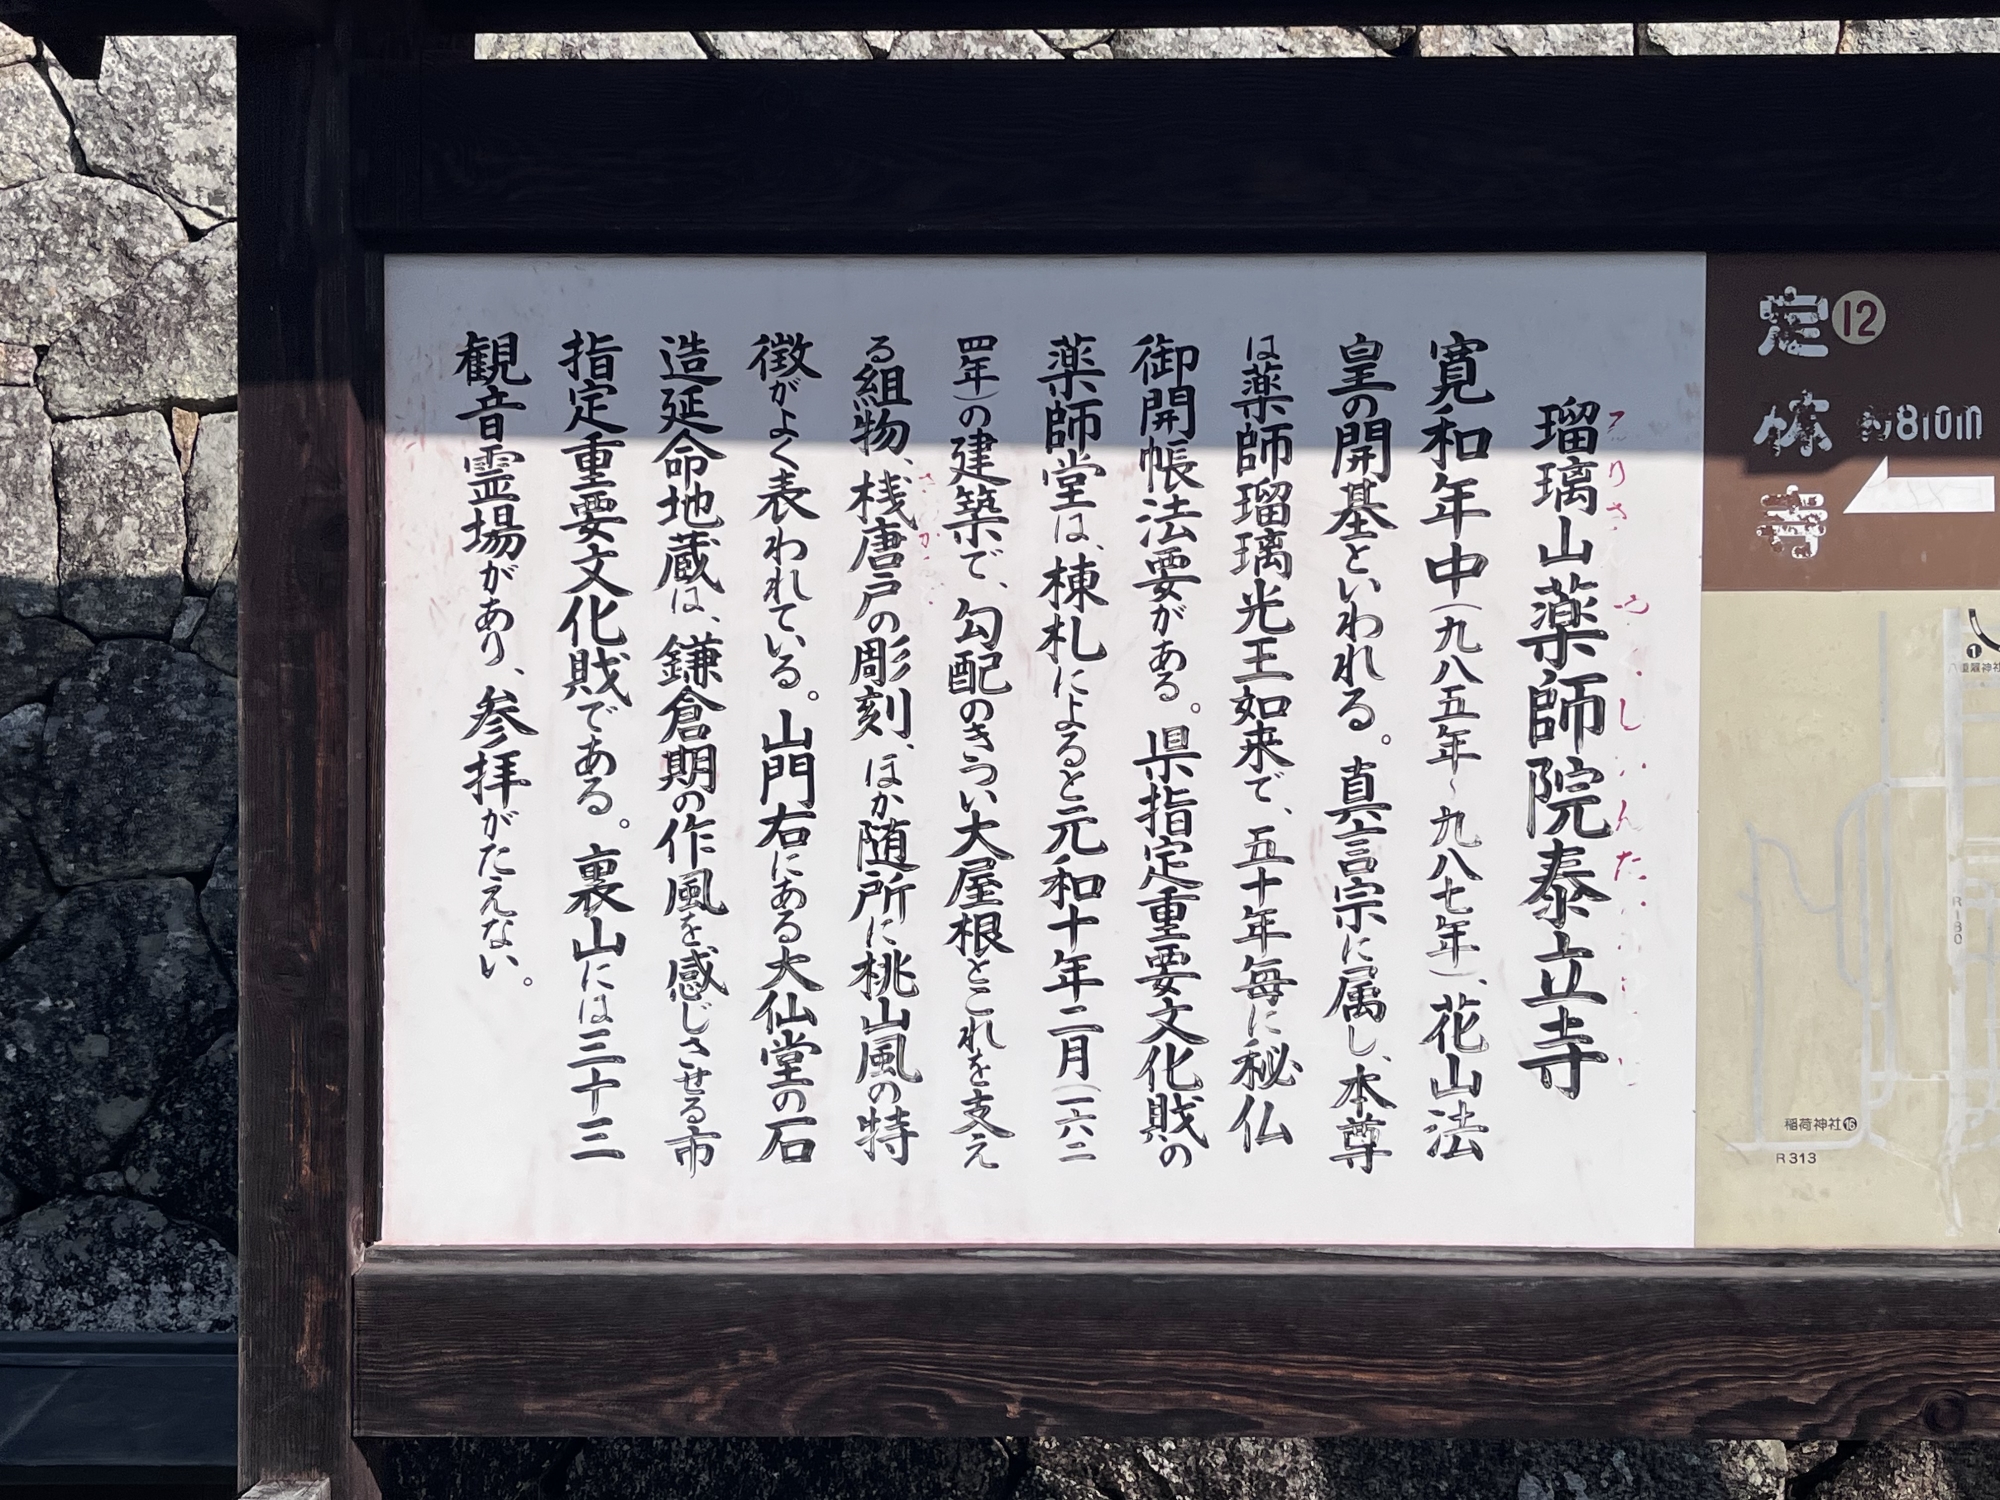 瑠璃山薬師院泰立寺
寛和年中(九八五年~九八七年)、花山法
皇の開基といわれる。真言宗に属し、本尊
は薬師瑠璃光王如来で、五十年毎に秘仏
御開帳法要がある。県指定重要文化財の
薬師堂は、棟札によると元和十年二月(一六二
四年)の建築で、勾配のきつい大屋根とこれを支え
る組物、桟唐戸の彫刻、ほか随所に桃山風の特
徴がよく表われている。山門右にある大仙堂の石
造延命地蔵は、鎌倉期の作風を感じさせる市
指定重要文化財である。裏山には三十三
観音霊場があり、参拝がたえない。
定林寺
12
810m
1
R180
稲荷神社16
R313